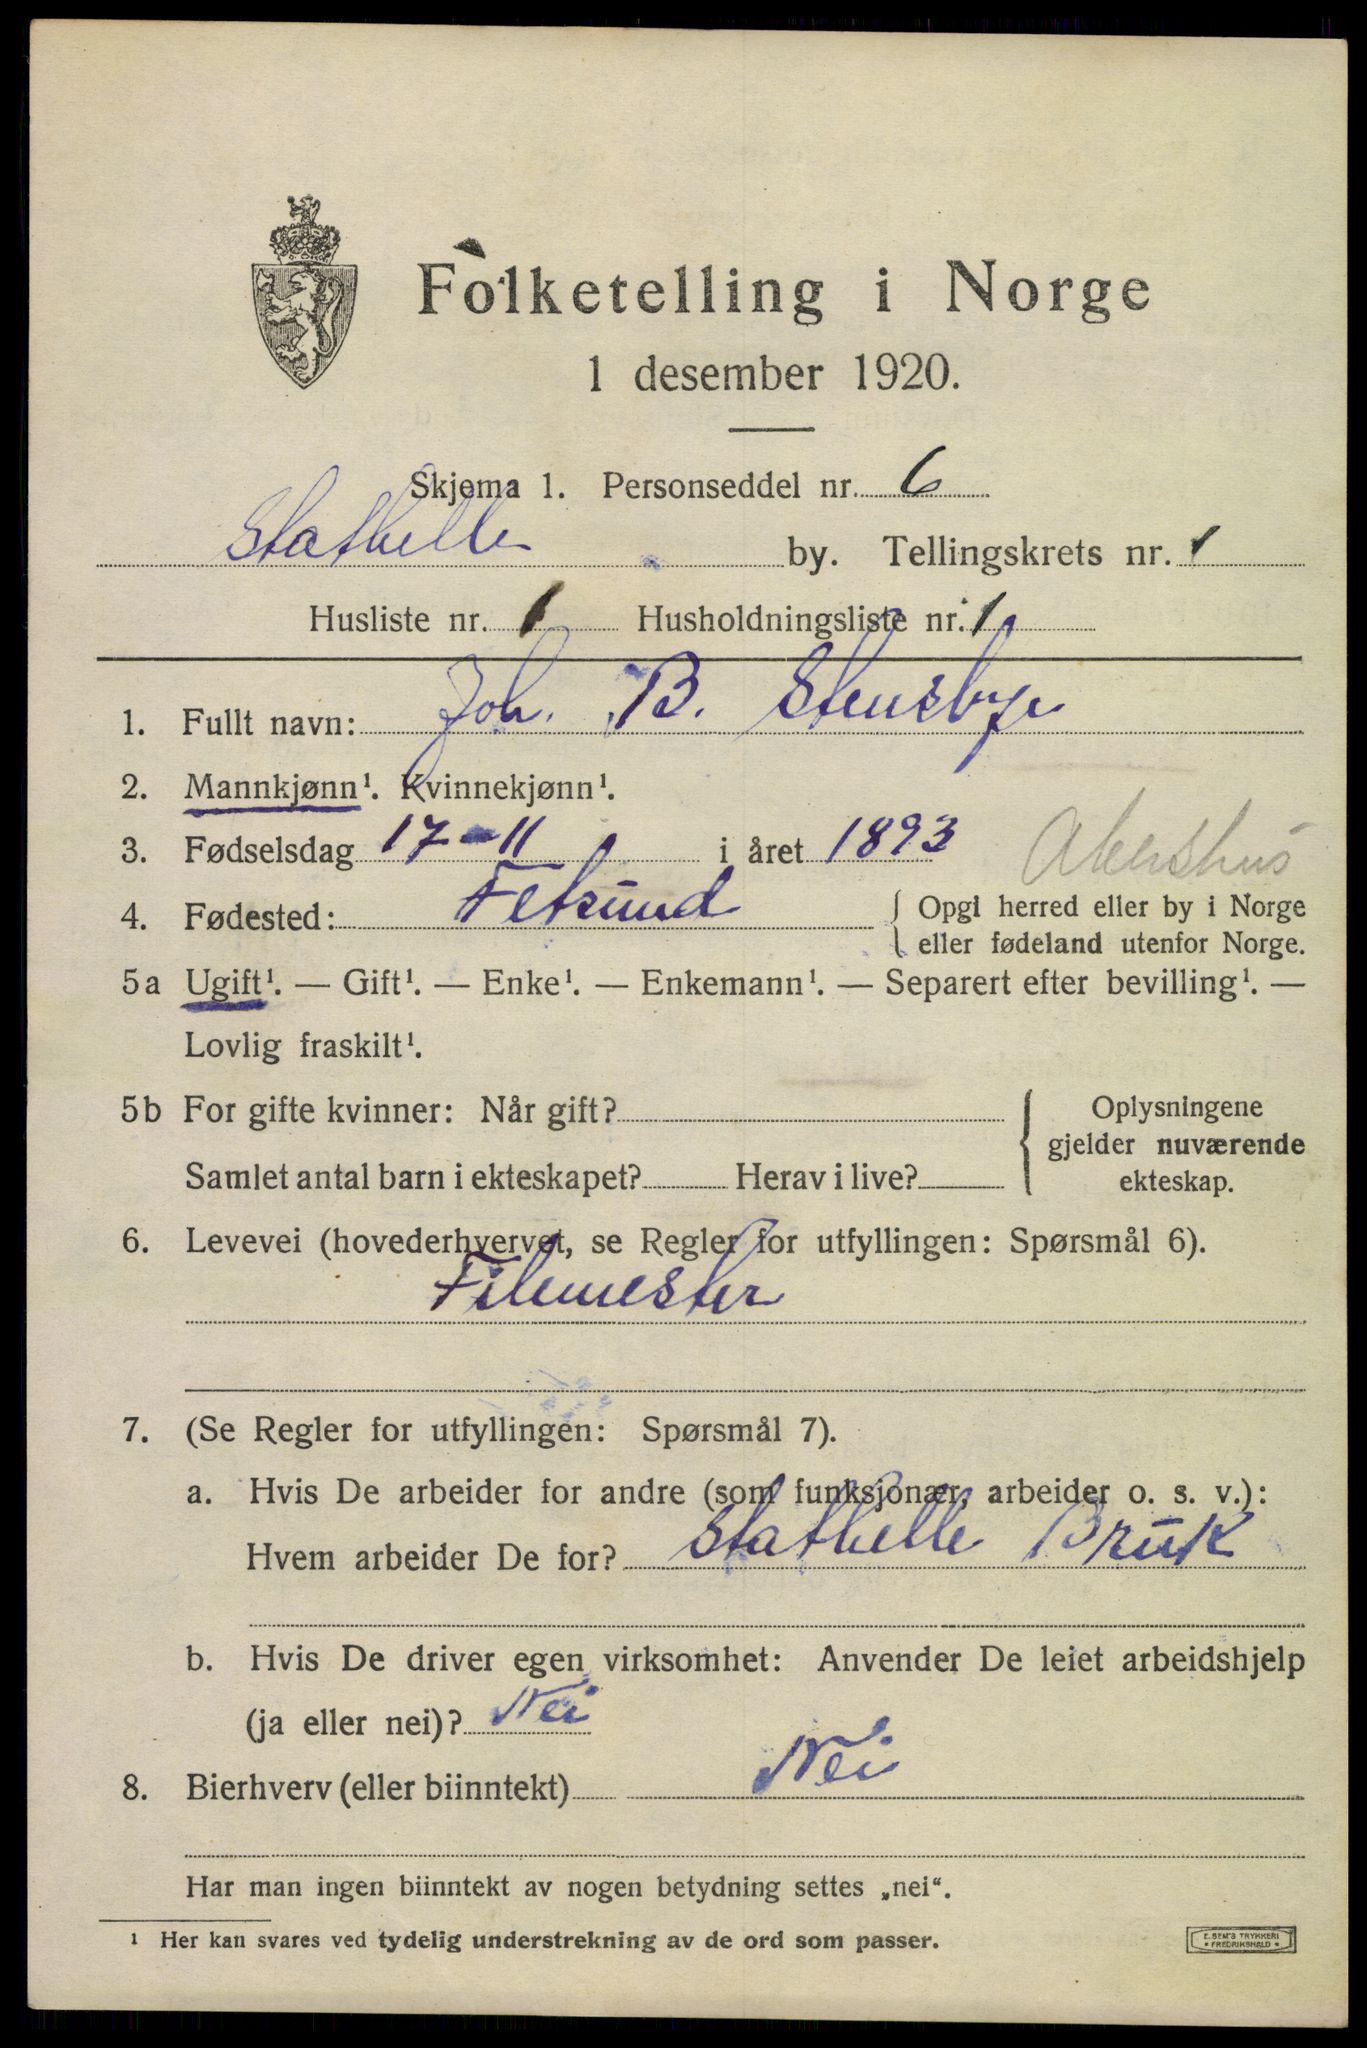 Folketelling i Norge
1 desember 1920.
Skjema 1. Personseddel nr. 6
Stathelle by. Tellingskrets nr. 1
Husliste nr. 1 Husholdningsliste nr. 1
1. Fullt navn: Joh. B. Stensbye
2. Mannkjønn¹. Kvinnekjønn¹.
3. Fødselsdag 17-11 i året 1893 Akershus
4. Fødested: Fetsund { Opgi herred eller by i Norge
eller fødeland utenfor Norge.
5a Ugift¹. — Gift¹. — Enke¹. — Enkemann¹. — Separert efter bevilling¹. —
Lovlig fraskilt¹.
5b For gifte kvinner: Når gift? { Oplysningene
gjelder nuværende
Samlet antal barn i ekteskapet? Herav i live? ekteskap.
6. Levevei (hovederhvervet, se Regler for utfyllingen: Spørsmål 6).
Filemester
7. (Se Regler for utfyllingen: Spørsmål 7).
a. Hvis De arbeider for andre (som funksjonær, arbeider o. s. v.):
Hvem arbeider De for? Stathelle Bruk
b. Hvis De driver egen virksomhet: Anvender De leiet arbeidshjelp
(ja eller nei)? Nei
8. Bierhverv (eller biinntekt) Nei
Har man ingen biinntekt av nogen betydning settes „nei“.
¹ Her kan svares ved tydelig understrekning av de ord som passer.
E. SEM'S TRYKKERI
• FREDRIKSHALD •